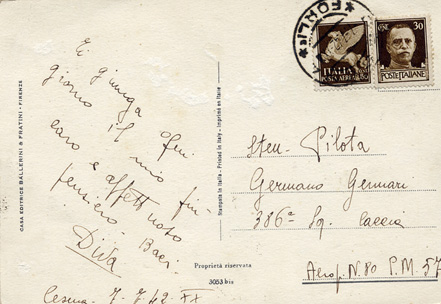 CASA EDITRICE BALLERINI & FRATINI - FIRENZE
Ti giunga
giorno il mio
caro e affettuoso
pensiero. Baci
Diva
Cesena 7.7.42 XX
Stampato in Italia - Printed in Italy - Imprimé en Italie
Proprietà riservata
3053 bis
FORLI
ITALIA
POSTA AEREA
30
POSTE ITALIANE
Pilota
Germano Gennari
386ª Sq. Caccia
Aerop. N. 80 P.M. 57